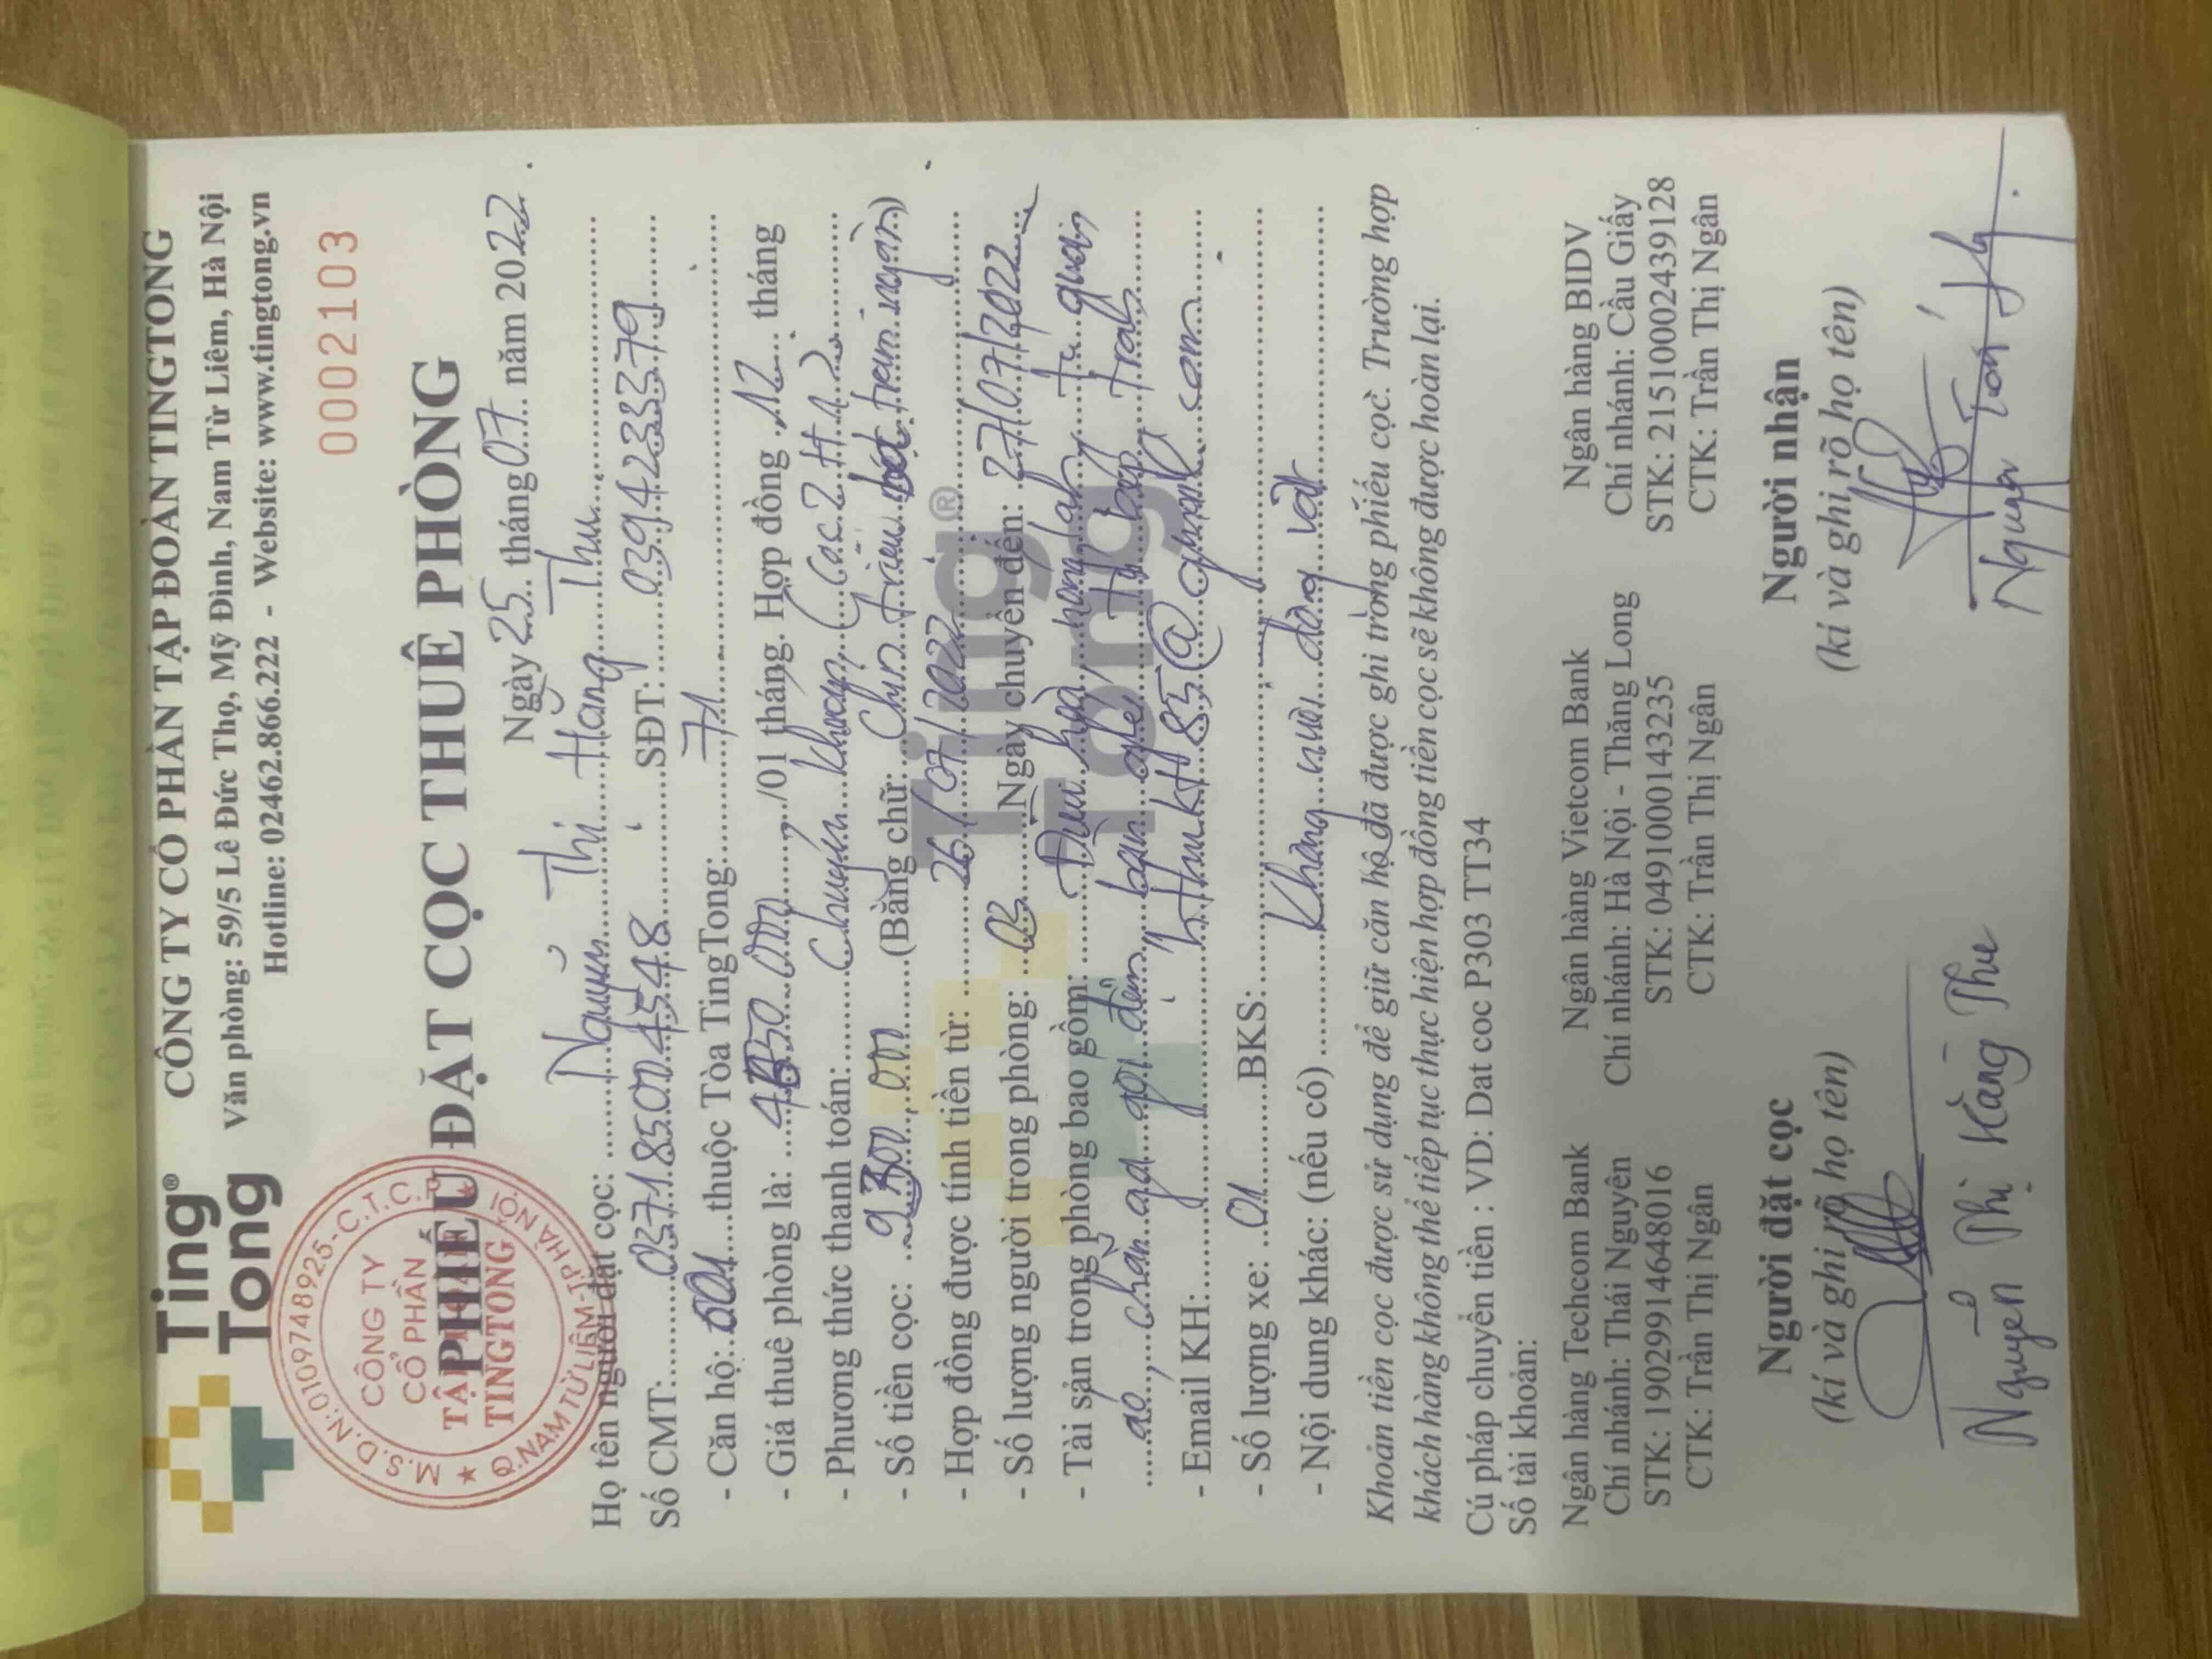 Ting Tong®
CÔNG TY CỔ PHẦN TẬP ĐOÀN TINGTONG
Văn phòng: 59/5 Lê Đức Thọ, Mỹ Đình, Nam Từ Liêm, Hà Nội
Hotline: 02462.866.222 - Website: www.tingtong.vn
0002103
M.S.D.N:0109748925-C.T.C.P
CÔNG TY
CỔ PHẦN
TẬP ĐOÀN
TINGTONG
Q.NAM TỪ LIÊM-TP HÀ NỘI
PHIẾU ĐẶT CỌC THUÊ PHÒNG
Ngày 25 tháng 07 năm 2022
Họ tên người đặt cọc: Nguyễn Thị Hằng Thu
Số CMT: 037185004548 SĐT: 0394233379
- Căn hộ: 601 thuộc Tòa TingTong: 71
- Giá thuê phòng là: 4.650.000 /01 tháng. Hợp đồng 12 tháng
- Phương thức thanh toán: Chuyển khoản (Cọc 2 TT 1)
- Số tiền cọc: 9.300.000 (Bằng chữ: Chín triệu ba trăm ngàn)
- Hợp đồng được tính tiền từ: 26/07/2022
- Số lượng người trong phòng: 03 Ngày chuyển đến: 27/07/2022
- Tài sản trong phòng bao gồm: Điều hòa, nóng lạnh, tủ quần
áo, chăn ga gối đệm, bàn ghế, tủ bếp,
- Email KH: hthukt85@gmail.com
- Số lượng xe: 01 BKS:
- Nội dung khác: (nếu có) Không nuôi động vật
Khoản tiền cọc được sử dụng để giữ căn hộ đã được ghi trong phiếu cọc. Trường hợp
khách hàng không thể tiếp tục thực hiện hợp đồng tiền cọc sẽ không được hoàn lại.
Cú pháp chuyển tiền : VD: Dat coc P303 TT34
Số tài khoản:
Ngân hàng Techcom Bank Ngân hàng Vietcom Bank Ngân hàng BIDV
Chí nhánh: Thái Nguyên Chí nhánh: Hà Nội - Thăng Long Chí nhánh: Cầu Giấy
STK: 19029914648016 STK: 0491000143235 STK: 21510002439128
CTK: Trần Thị Ngân CTK: Trần Thị Ngân CTK: Trần Thị Ngân
Người đặt cọc Người nhận
(kí và ghi rõ họ tên) (kí và ghi rõ họ tên)
Nguyễn Thị Hằng Thu Nguyễn
Ting Tong®